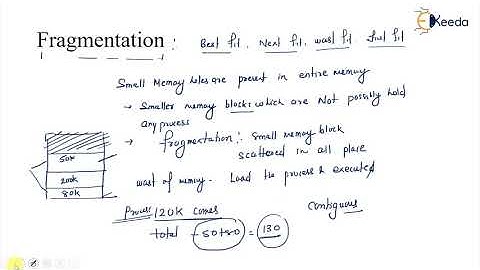 Ekeeda
Fragmentation : Best fit, Next fit, wast fit, first fit
Small Memory holes are present in entire memory
→ Smaller memory blocks which are Not possibly hold
any process
→ fragmentation :- Small memory block
scattered in all place
wast of memory - Load the process & executed
50K
200K
80K
Process 120K comes contiguous
total - 50+80 = 130